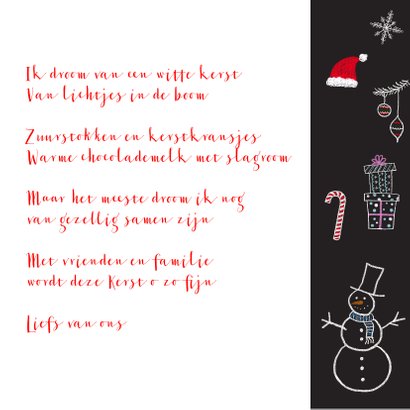 Ik droom van een witte kerst
Van lichtjes in de boom
Zuurstokken en kerstkransjes
Warme chocolademelk met slagroom
Maar het meeste droom ik nog
van gezellig samen zijn
Met vrienden en familie
wordt deze Kerst o zo fijn
Liefs van ons